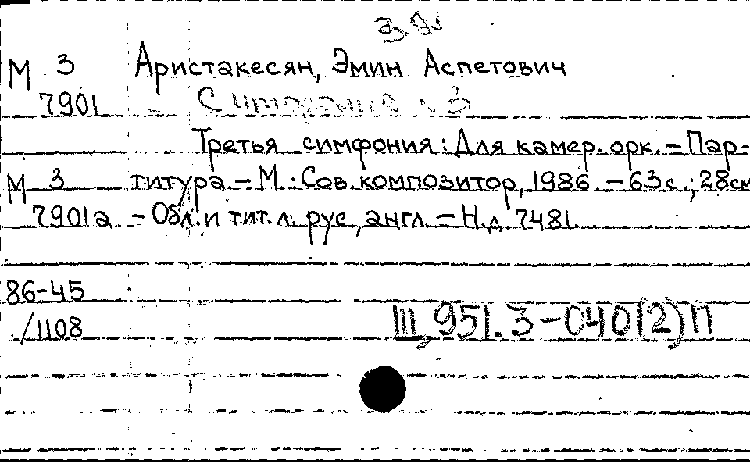 М 3 Аристакесян, Эмин Аспетович
7901 Симфония № 3
Третья симфония: Для камер. орк. – Пар-
М 3 титура – М.: Сов. композитор, 1986. – 63 с.; 28 см
7901а – Обл. и тит. л. рус., англ. – Н.д. 7481
86-45
/1108 Ш, 951.3-040(2)П